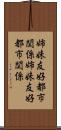 姉妹友好都市
関係姉妹友好
都市関係